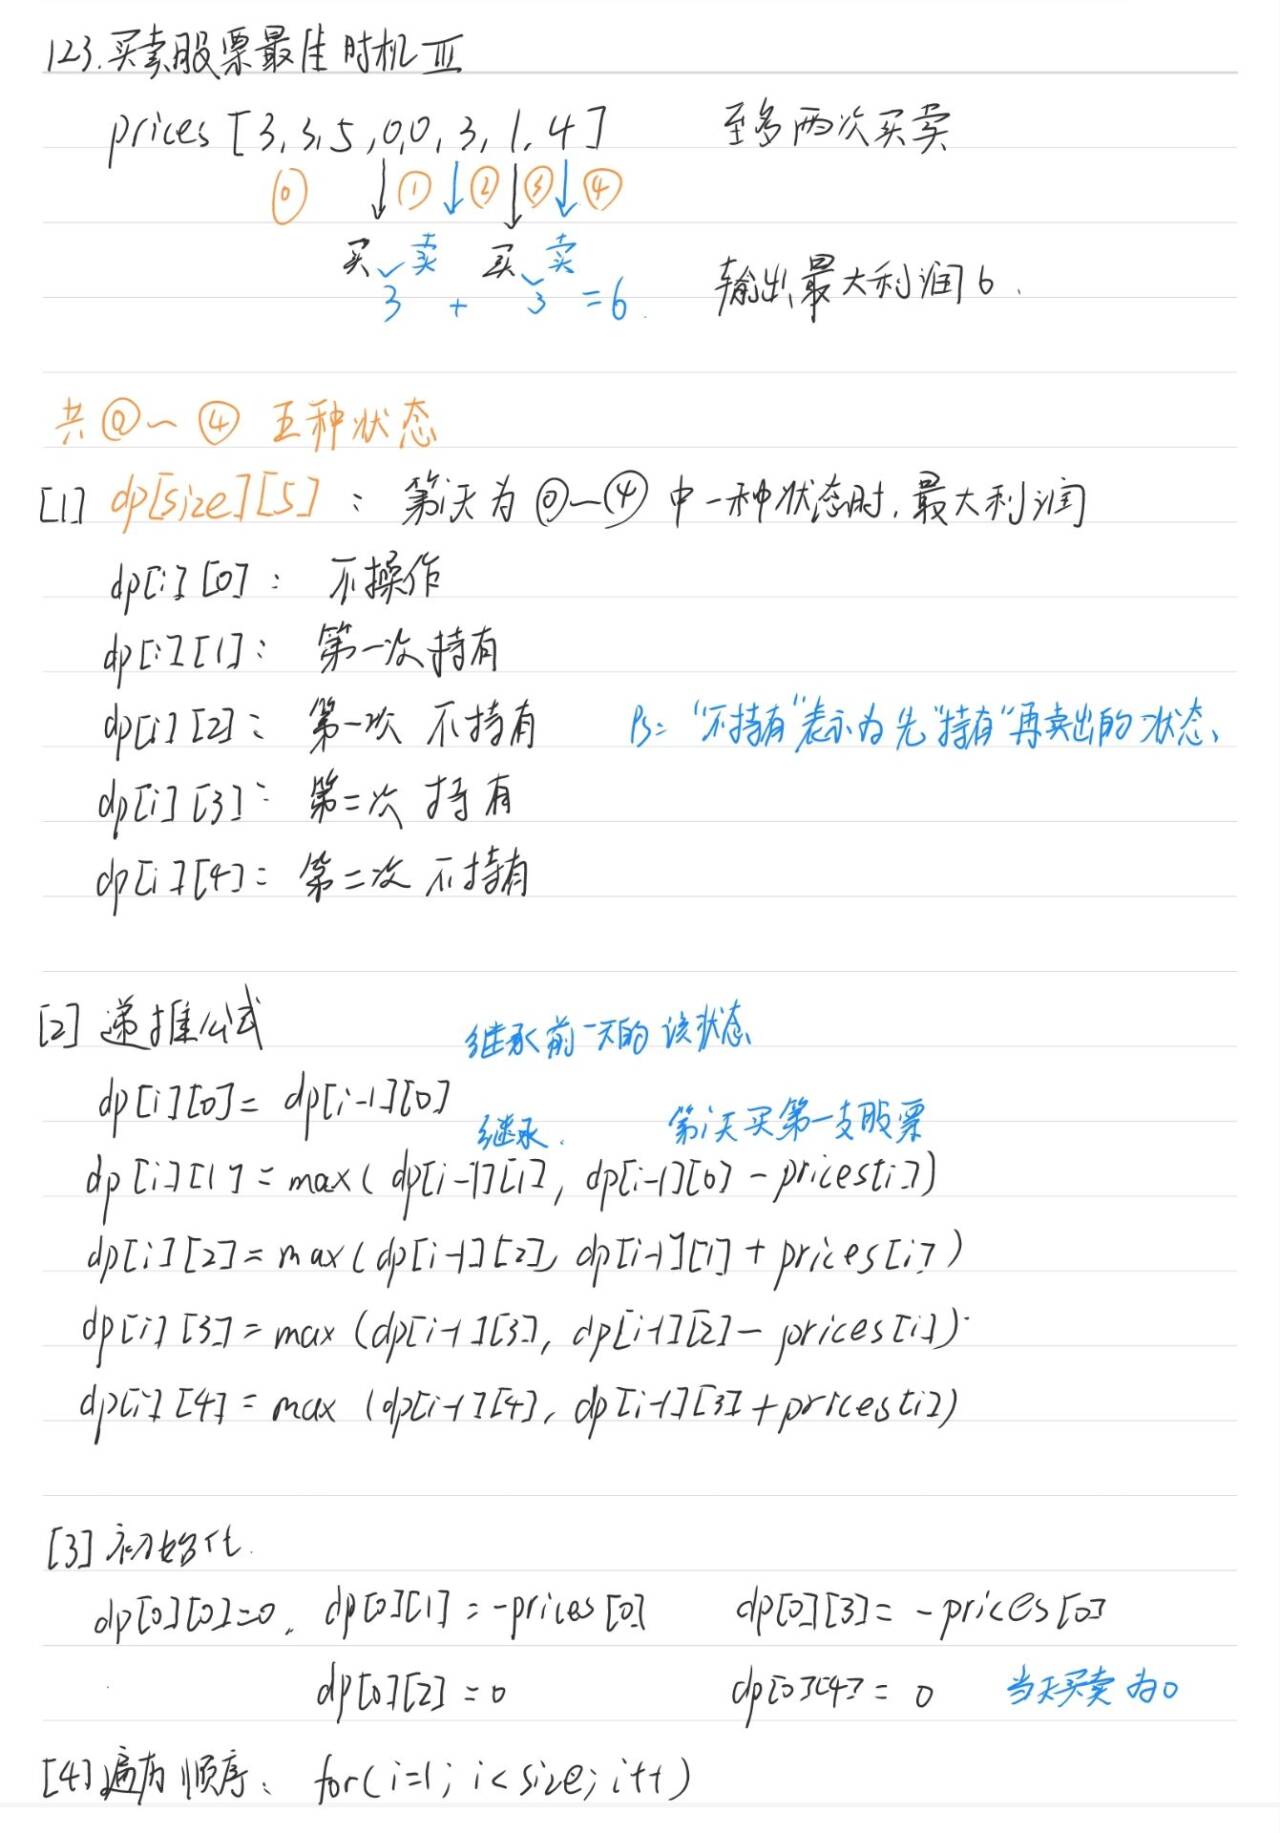 123.买卖股票最佳时机 III
prices [3,3,5,0,0,3,1,4] 至多两次买卖
⓪ ① ② ③ ④
买 卖 买 卖
3 + 3 = 6. 输出最大利润6.
共⓪~④ 五种状态
[1] dp[size][5]: 第i天为⓪~④中一种状态时,最大利润
dp[i][0]: 不操作
dp[i][1]: 第一次持有
dp[i][2]: 第一次 不持有 Ps: "不持有"表示为先"持有"再卖出的状态、
dp[i][3]: 第二次 持有
dp[i][4]: 第二次 不持有
[2] 递推公式
继承前一天的该状态
dp[i][0]= dp[i-1][0]
继承. 第i天买第一支股票
dp[i][1]= max( dp[i-1][1], dp[i-1][0] - prices[i])
dp[i][2]= max(dp[i-1][2], dp[i-1][1] + prices[i])
dp[i][3]= max (dp[i-1][3], dp[i-1][2] - prices[i])
dp[i][4] = max (dp[i-1][4], dp[i-1][3] + prices[i])
[3] 初始化.
dp[0][0]=0. dp[0][1] = -prices[0] dp[0][3] = -prices[0]
dp[0][2] = 0 dp[0][4] = 0 当天买卖为0
[4] 遍历顺序: for(i=1; i< size; i++)